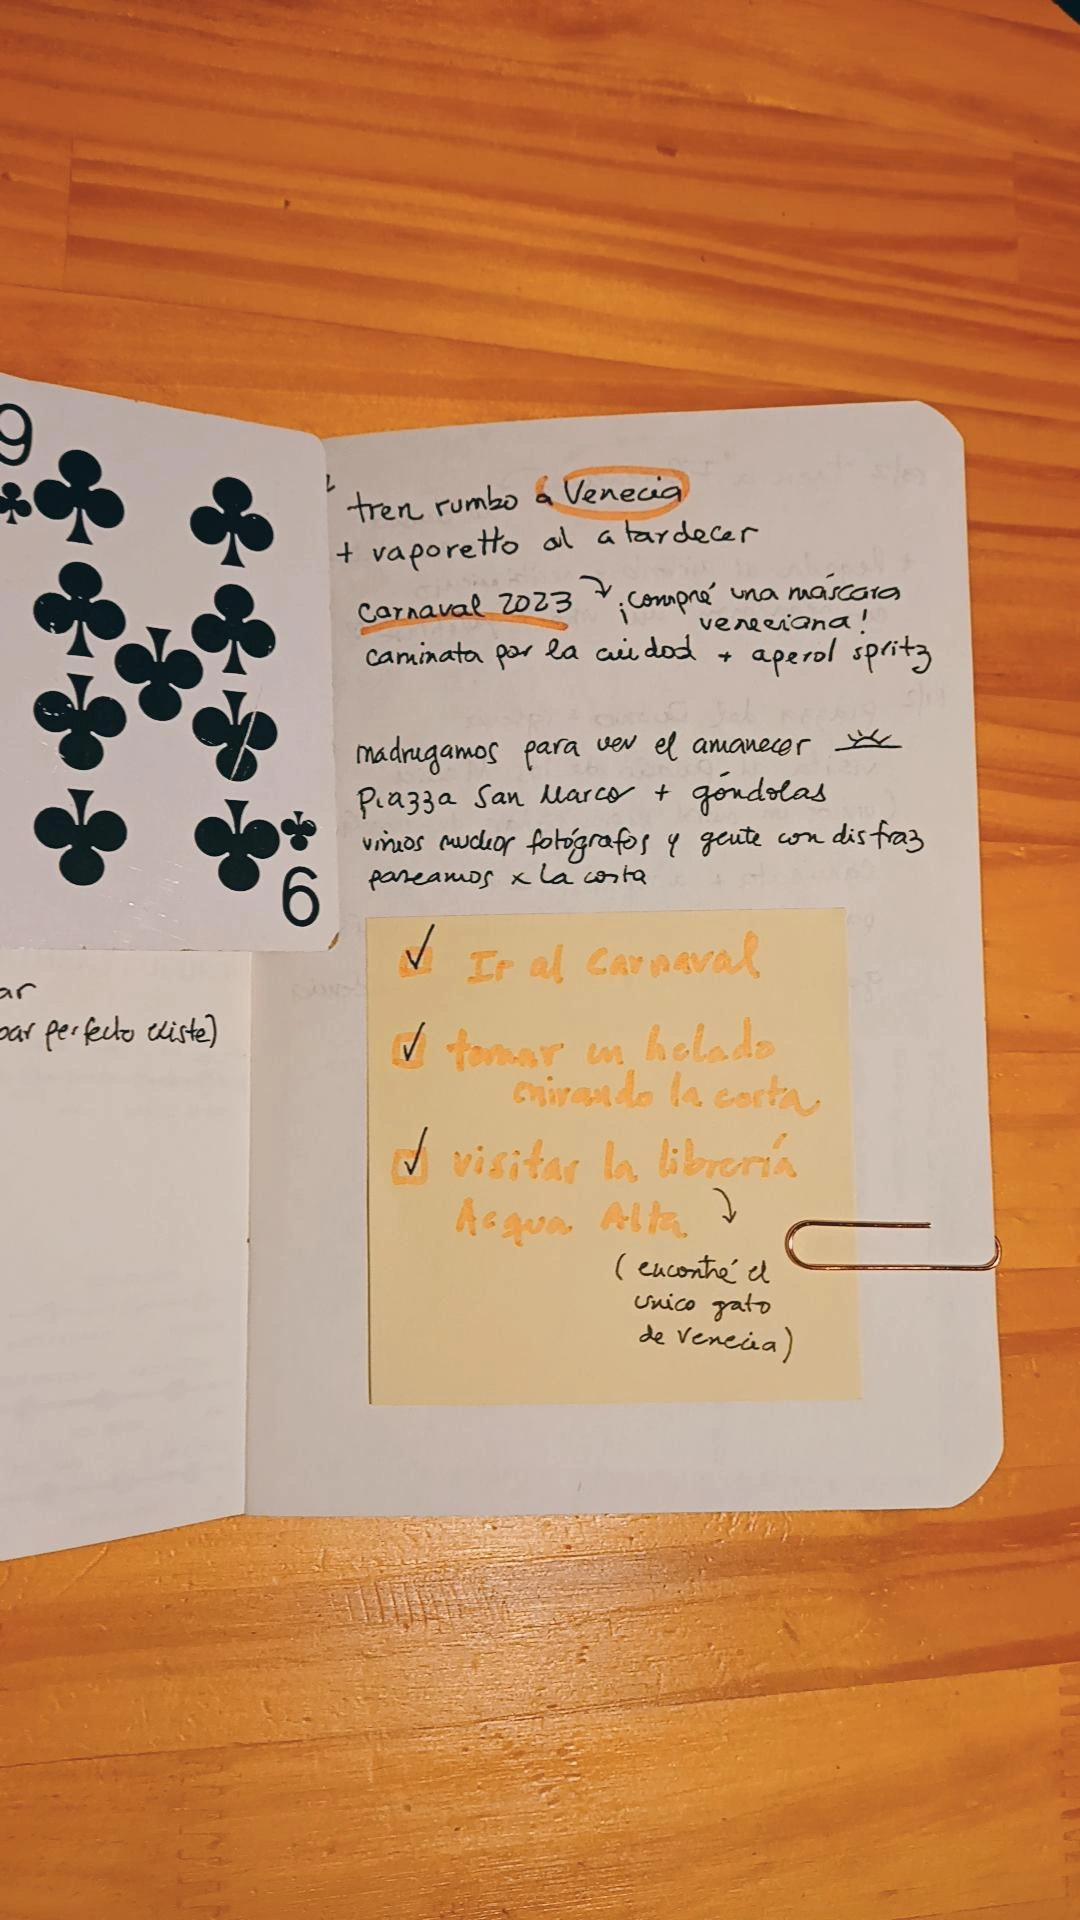 9
9
ar
bar perfecto existe)
tren rumbo a Venecia
+ vaporetto al atardecer
Carnaval 2023 ¡compré una máscara
veneciana!
caminata por la ciudad + aperol spritz
madrugamos para ver el amanecer
Piazza San Marco + góndolas
vimos muchos fotógrafos y gente con disfraz
paseamos x la costa
Ir al Carnaval
tomar un helado
mirando la costa
visitar la librería
Acqua Alta
(encontré el
unico gato
de Venecia)